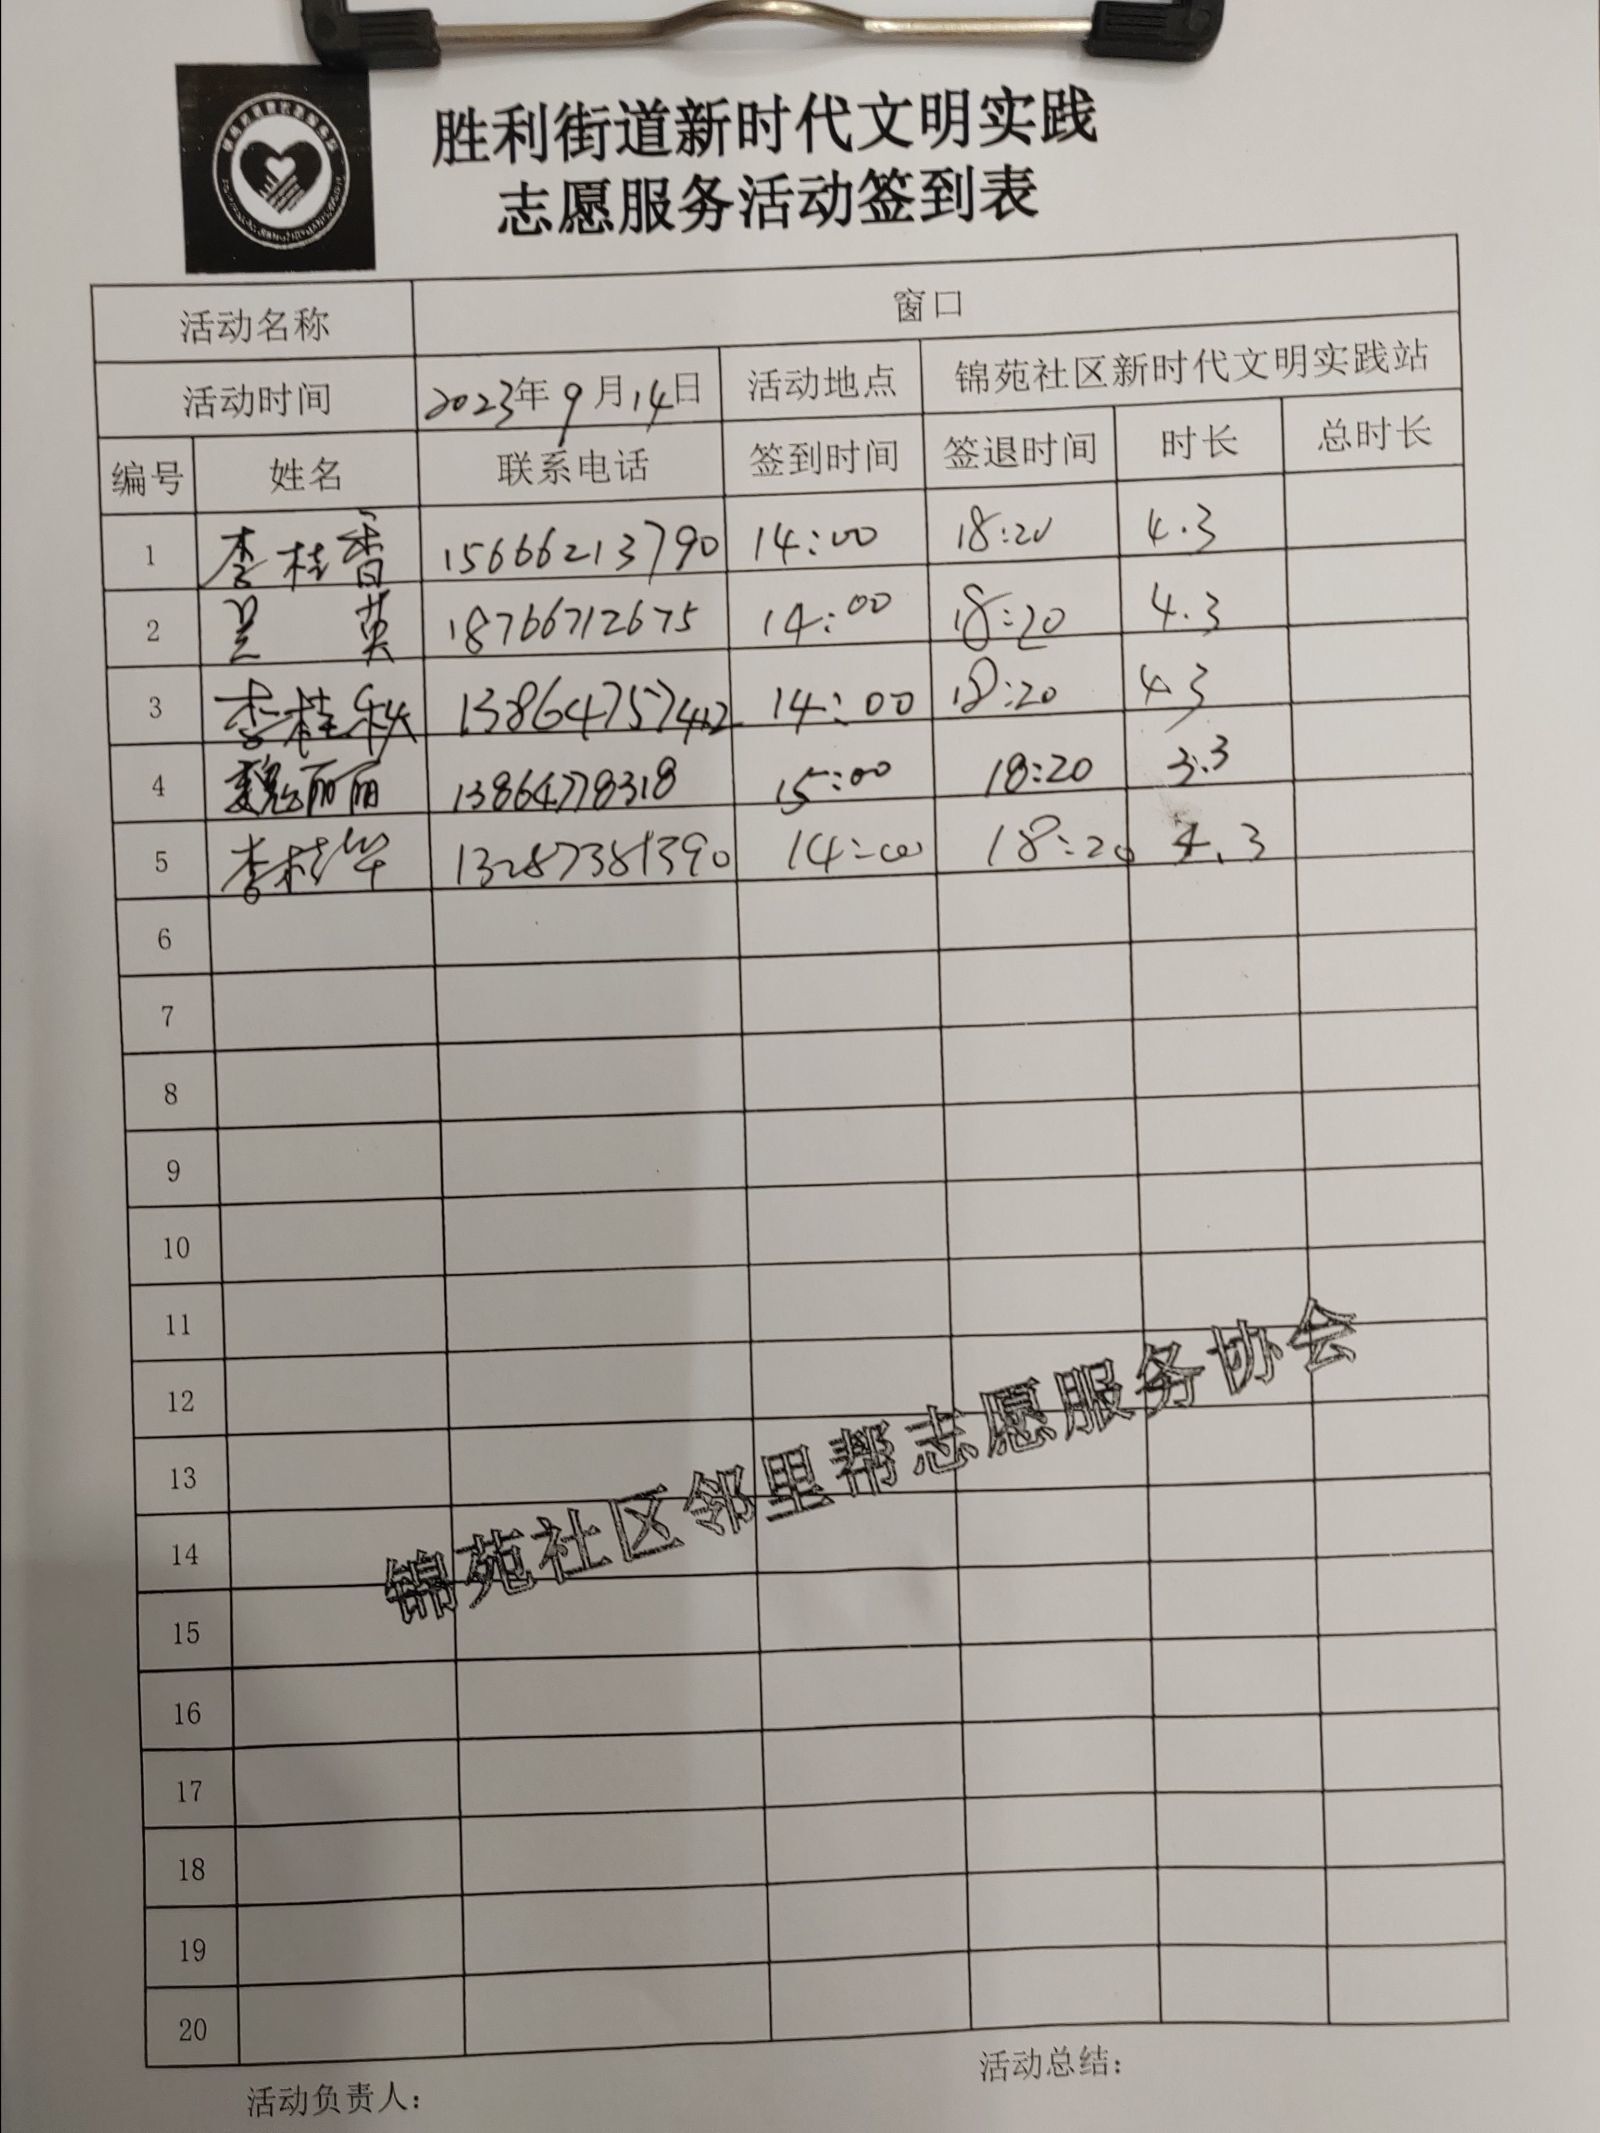 胜利街道新时代文明实践
志愿服务活动签到表
活动名称 窗口
活动时间 2023年9月14日 活动地点 锦苑社区新时代文明实践站
编号 姓名 联系电话 签到时间 签退时间 时长 总时长
1 李桂香 15666213790 14:00 18:20 4.3
2 英 18766712675 14:00 18:20 4.3
3 李桂秋 13864757412 14:00 18:20 4.3
4 魏丽丽 13864778318 15:00 18:20 3.3
5 李桂华 13287381390 14:00 18:20 4.3
6
7
8
9
10
11
12
13
14
15
16
17
18
19
20
锦苑社区邻里帮志愿服务协会
活动负责人： 活动总结：